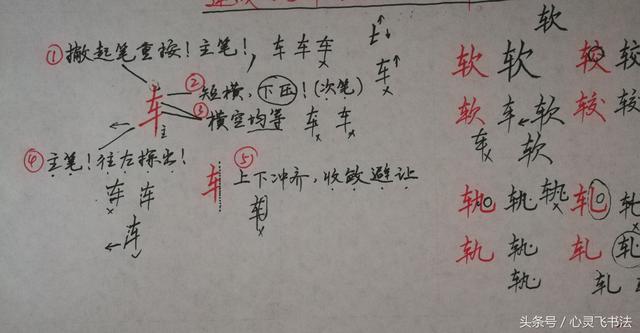 ①撇起笔重按！主笔！, 车车车
车
②短横，下压！(次笔)
车
主
③横空均等 车 车
④主笔！往左探出！
车 车
车
车
⑤上下冲齐，收敛避让
车
软
软 软
软 车 软
车 软
较 较
较 较
轨 轨 轨
轨 轨
轨
轧 轧
轧 轧
轧
头条号／心灵飞书法